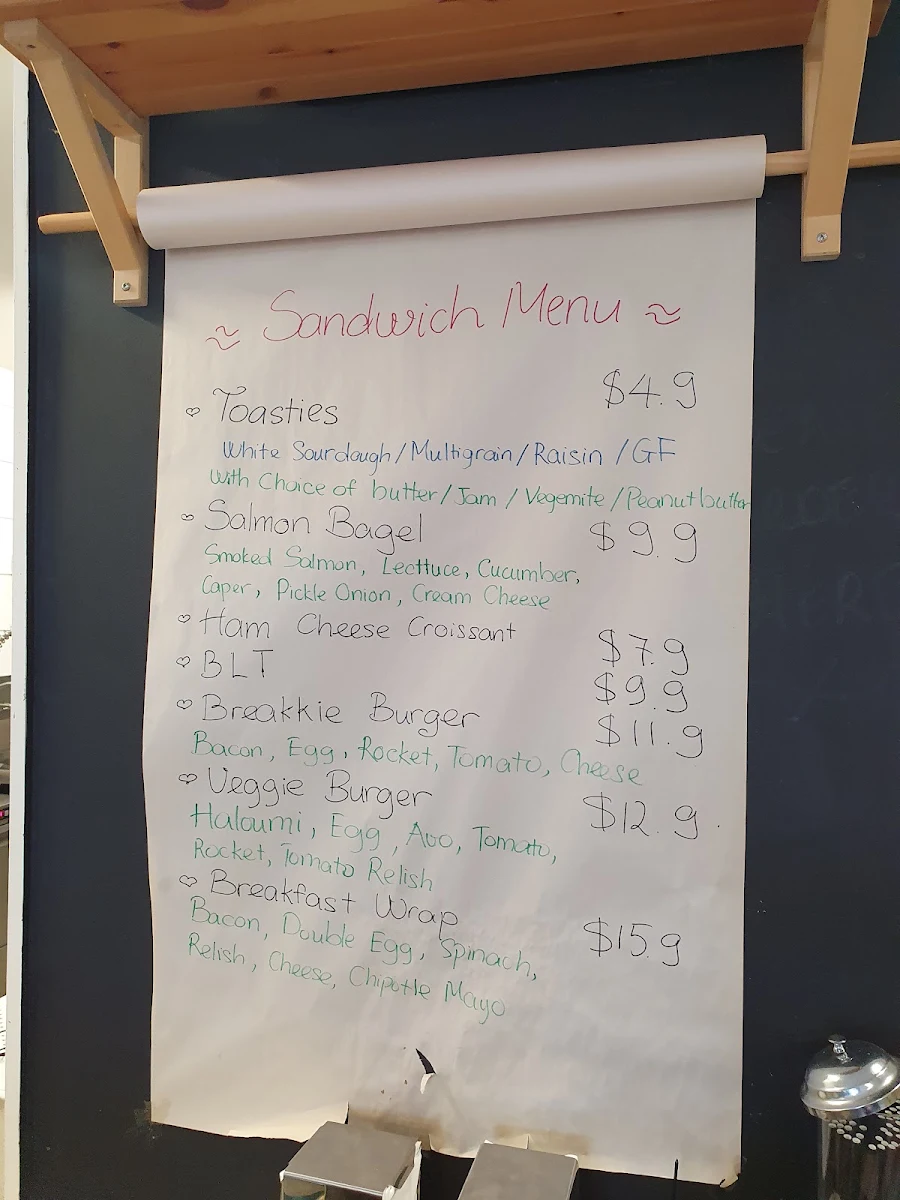 ~ Sandwich Menu ~
♡ Toasties $4.9
White Sourdough/Multigrain/Raisin/GF
With Choice of butter/Jam/Vegemite/Peanut butter
♡ Salmon Bagel $9.9
Smoked Salmon, Lecttuce, Cucumber,
Caper, Pickle Onion, Cream Cheese
♡ Ham Cheese Croissant $7.9
♡ BLT $9.9
♡ Breakkie Burger $11.9
Bacon, Egg, Rocket, Tomato, Cheese
♡ Veggie Burger $12.9
Haloumi, Egg, Avo, Tomato,
Rocket, Tomato Relish
♡ Breakfast Wrap $15.9
Bacon, Double Egg, Spinach,
Relish, Cheese, Chipotle Mayo